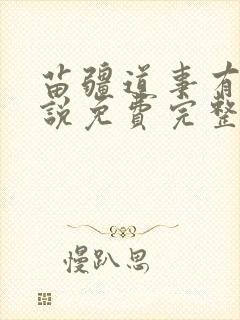 苗疆道事有
说免费完整
慢趴思